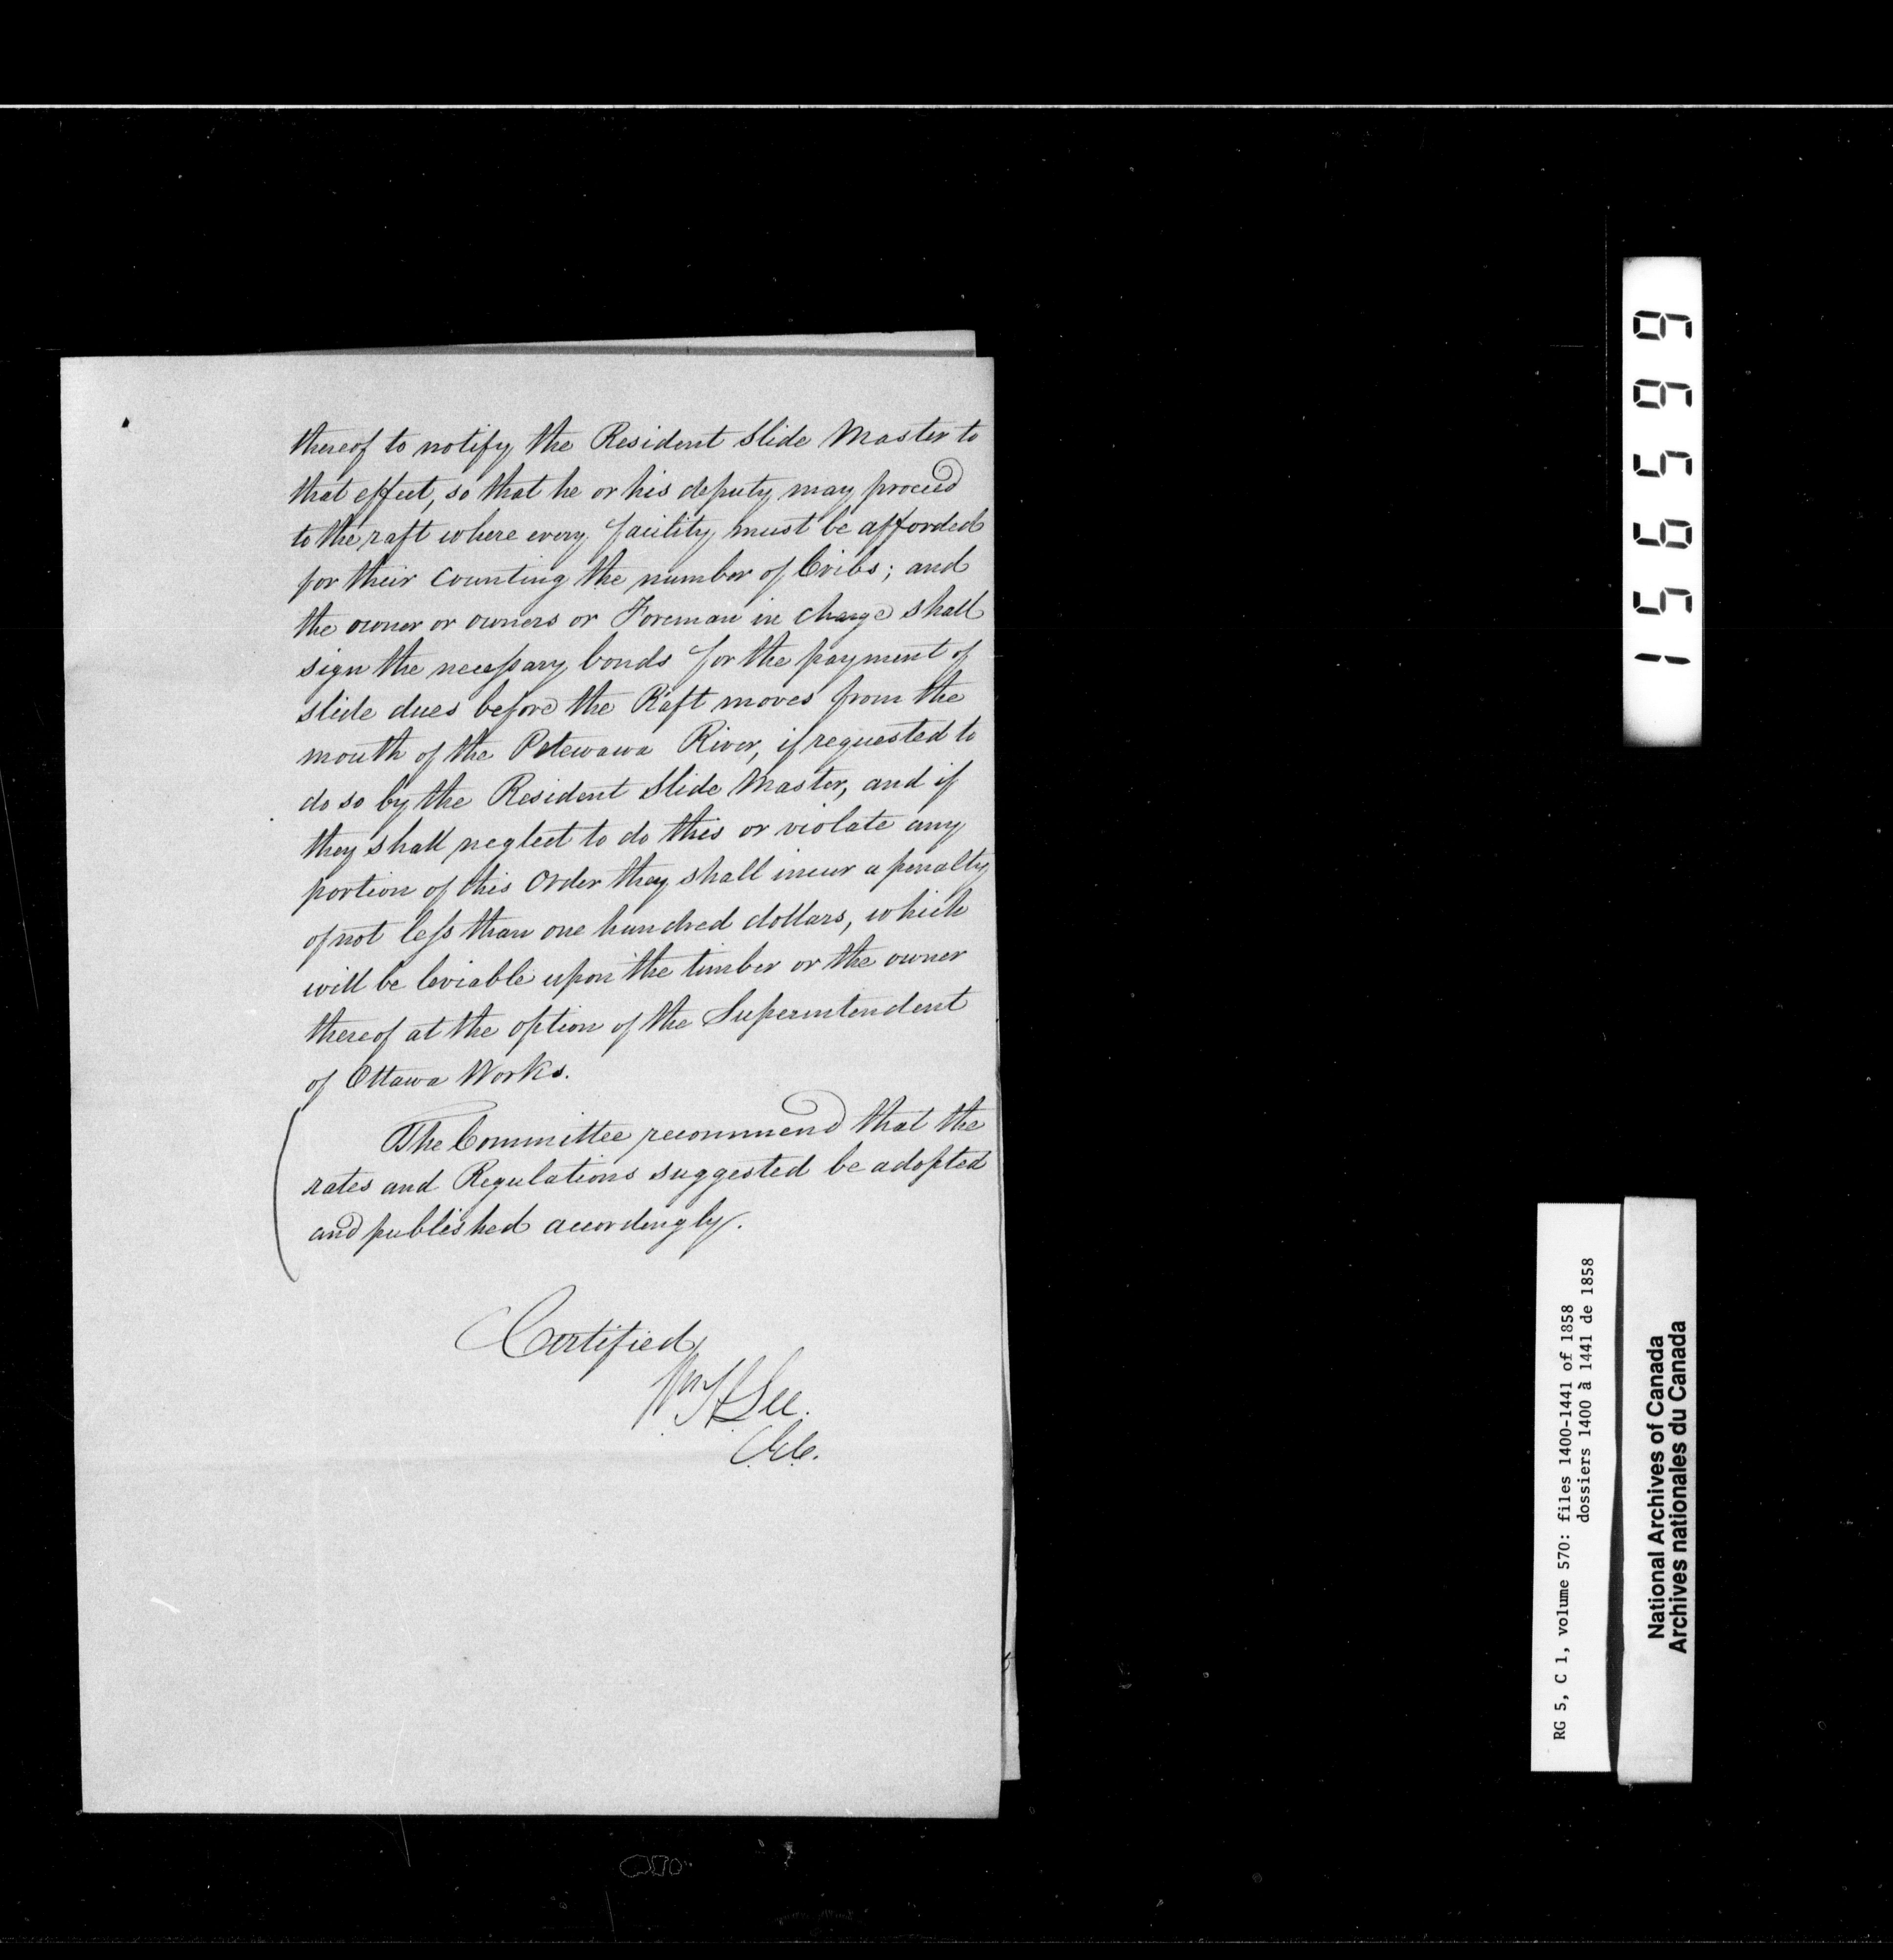 thereof to notify the Resident Slide Master to
that effect, so that he or his deputy may proceed
to the raft where every facility must be afforded
for their counting the number of Cribs; and
the owner or owners or Foreman in charge shall
sign the necessary bonds for the payment of
slide dues before the Raft moves from the
mouth of the Petewawa River, if requested to
do so by the Resident Slide Master, and if
they shall neglect to do this or violate any
portion of this Order they shall incur a penalty
of not less than one hundred dollars, which
will be leviable upon the timber or the owner
thereof at the option of the Superintendent
of Ottawa Works.
The Committee recommend that the
rates and Regulations suggested be adopted
and published accordingly.
Certified
Wm H Lee.
C.E.C.
156599
RG 5, C 1, volume 570: files 1400-1441 of 1858
dossiers 1400 à 1441 de 1858
National Archives of Canada
Archives nationales du Canada